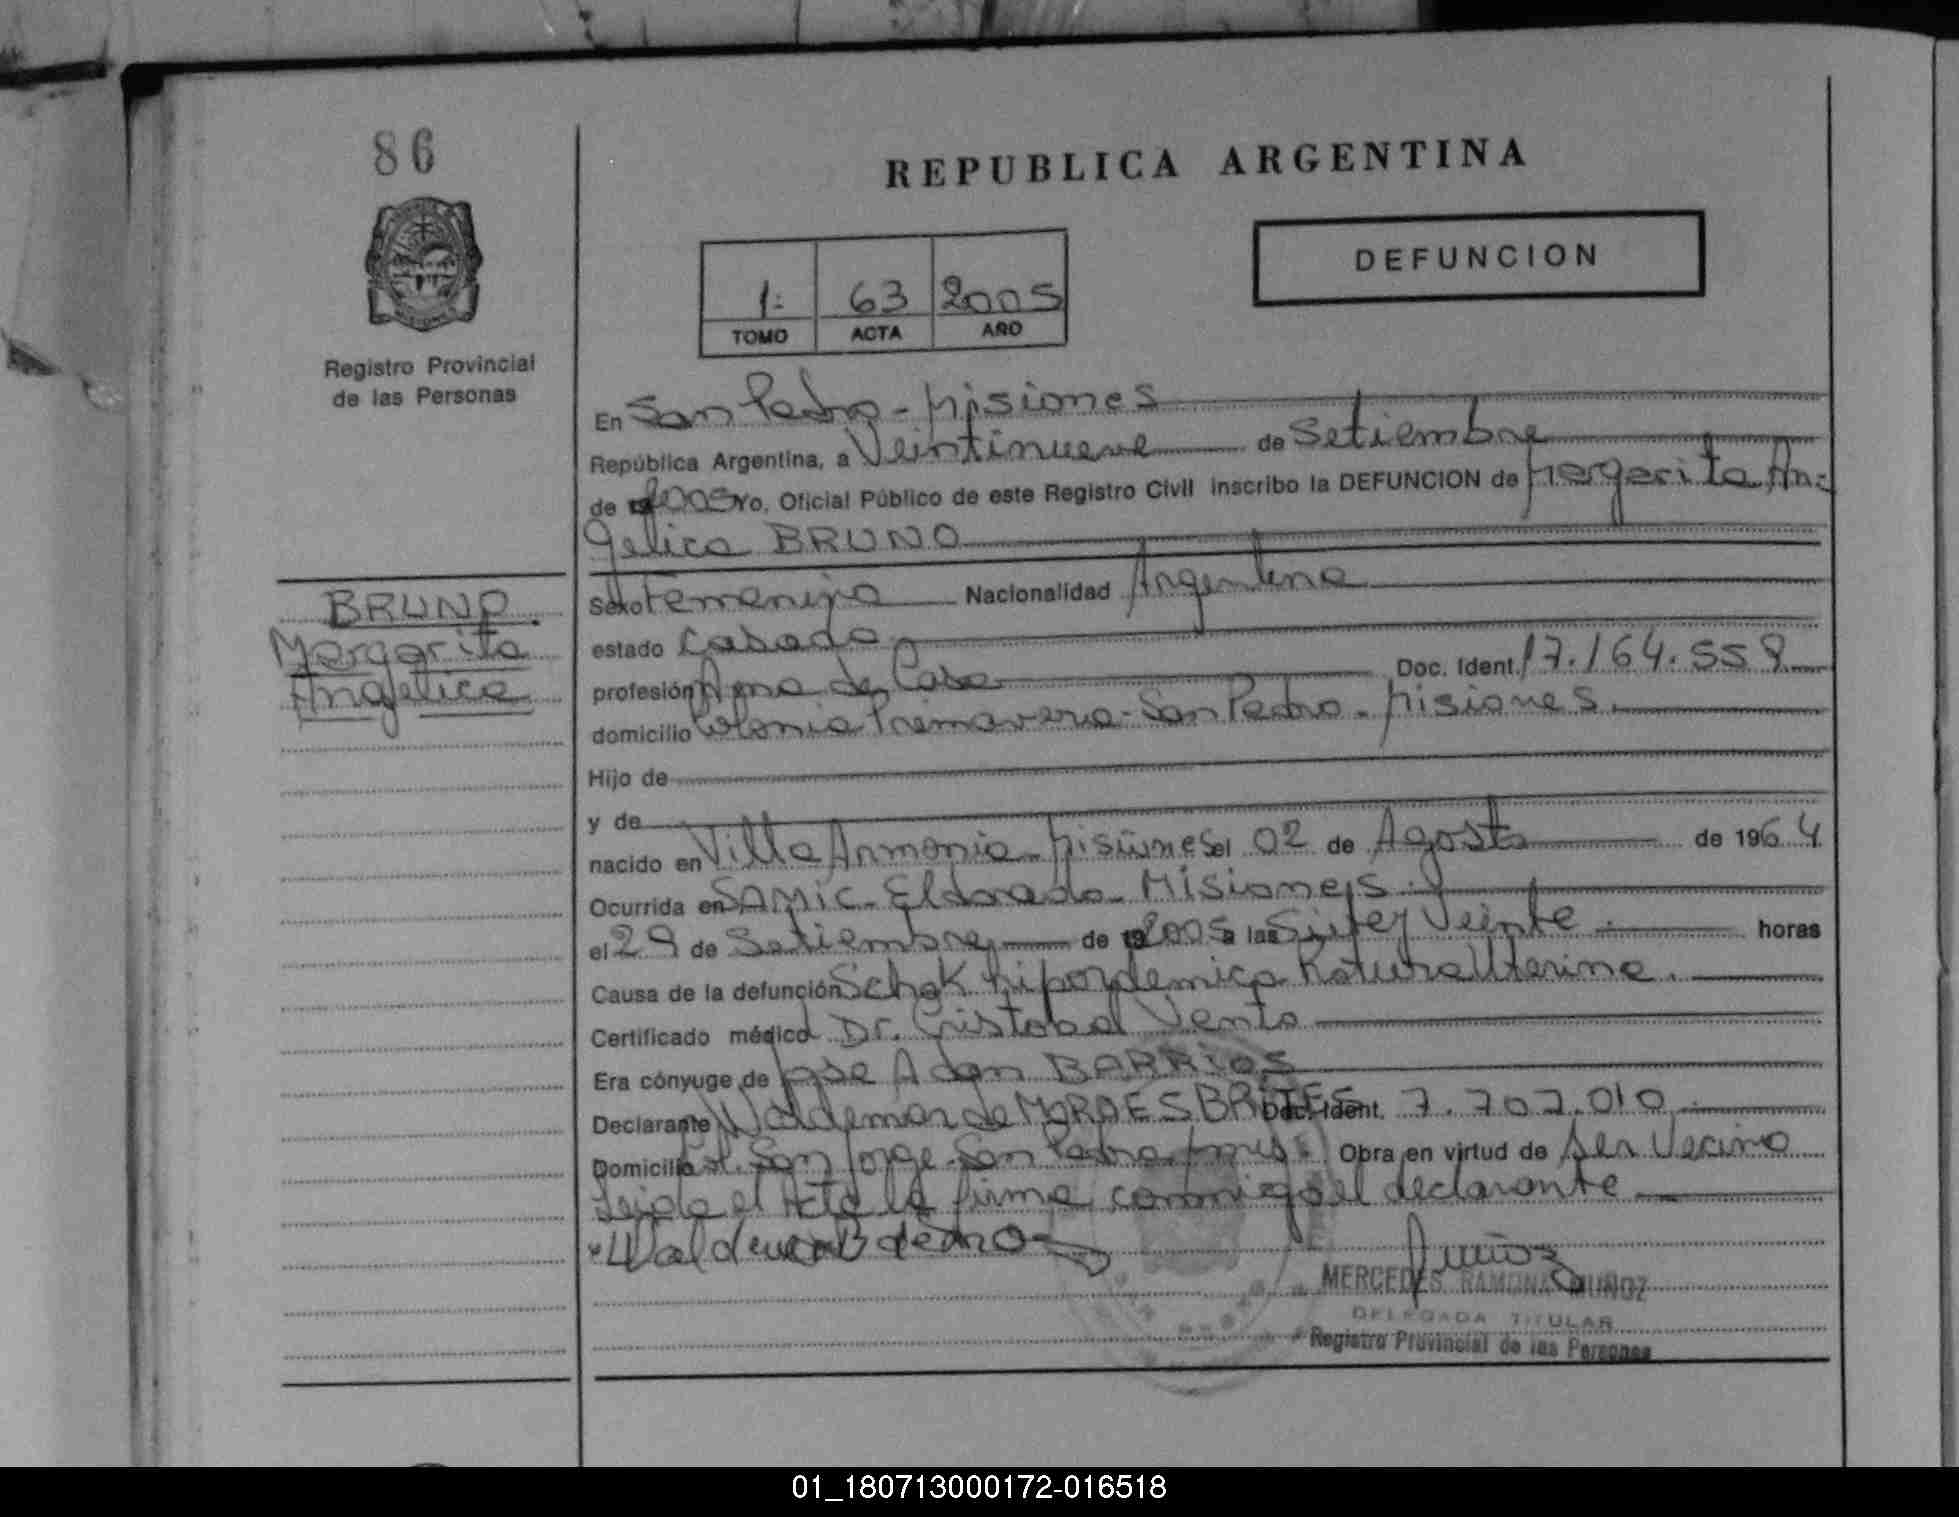 86
REPUBLICA ARGENTINA
DEFUNCION
1: 63 2005
TOMO ACTA AÑO
Registro Provincial
de las Personas
BRUNO.
Margarita
Angelica
En San Pedro - Misiones
República Argentina, a Veintinueve de Setiembre
de 2005 Yo, Oficial Público de este Registro Civil inscribo la DEFUNCION de Margarita An=
gelica BRUNO
Sexo Femenino Nacionalidad Argentina
estado Casada
profesión Ama de Casa Doc. Ident. 17.164.558
domicilio Colonia Primavera - San Pedro - Misiones.
Hijo de
y de
nacido en Villa Armonia - Misiones el 02 de Agosto de 1964
Ocurrida en SAMIC - Eldorado - Misiones
el 29 de Setiembre de 2005 a las Siete y Veinte horas
Causa de la defunción Schok Uterina.
Certificado médico Dr. Cristobal Vento
Era cónyuge de Jose Adan BARRIOS
Declarante Waldemar de MORAES BRITES Doc. Ident. 7.707.010
Domicilio Col. San Jorge - San Pedro - Mnes Obra en virtud de ser Vecino
Leida el Acta la firma conmigo el declarante
MERCEDES RAMONA MUÑOZ
DELEGADA TITULAR
Registro Provincial de las Personas
01_180713000172-016518